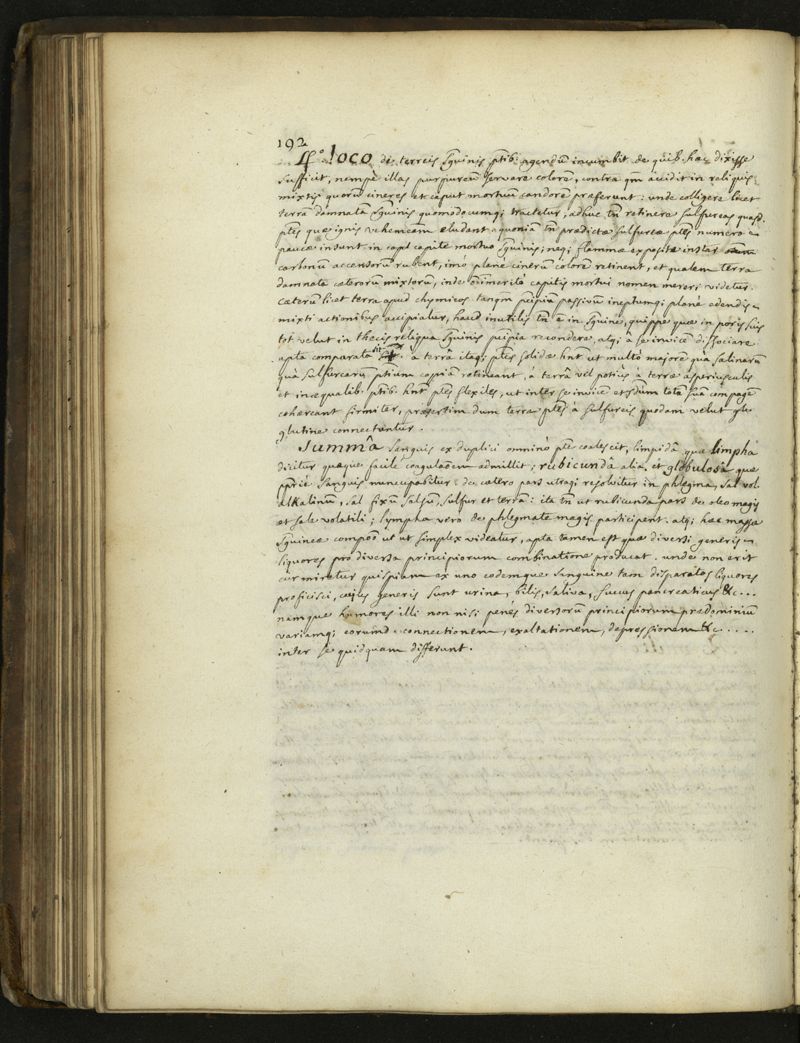 192
4.° loco de terreis sguinis ptib. agendū incumbit de quib. hæc dixisse
sufficit, nempè illas purpureū servare colorē, contra qm̄ accidit in reliquis
mixtis quorū cineres et caput mortuū candorē præferunt: unde colligere licet
terrā damnatā sguinis quomodocumq; tractetur, adhuc tn̄ retinere sulfureas quasd.
ptēs quæ ignis vehemeām eludant. quoniā tn̄ prædictæ sulfureæ ptēs numero
paucæ insunt in capite mortuo sguinis; neq; flammæ expositæ instar
carbonū accensorū rubent, imò planè cinerū colorē retinent, et qualem terra
damnata cæterorū mixtorū, inde immeritò capitis mortui nomen mereri videtur.
cæterū licet terra apud chymicos tanqm̄ pcipiū passivū ineptumq; planè edendis
mixti actionibus accipiatur, haud inutilis tn̄ ē in sguine, quippe quæ in poris suis
tot velut in thecis reliqua sguinis pcipia recondere, atq; à se invicē dissociare
apta comparata sit. à terrâ itaq; ptēs solidæ hnt ut multò majorē quà salinarū
quà sulfurearū ptium copiā retineant, à terrâ vel potiùs à terræ asperiusculis
et inæqualib. ptib. hnt ptēs flexiles, ut inter se invicē et sdum totā suā compagē
cohæreant firmiter, præsertim dum terræ ptēs à sulfureis quodam velut glu
glutine connectuntur.
Summâ sanguis ex duplici omninò pte coalescit, limpidâ quæ limpha
dicitur quæque facilè coagulaōem admittit; rubicundâ aliâ, et globulosâ quæ
pprie sanguis nuncupabitur: de cætero pars utraq; resolvitur in phlegma, sal vol.
alKalinum, sal fixū salsū, sulfur et terrā: ita tn̄ ut rubicunda pars de oleo magis
et sale volatili; lympha verò de phlegmate magis participent. atq; hæc massa
sguinea ut ut simplex videatur, apta tamen est quæ diversi generis
liquores pro diversa principiorum combinatione producat. unde non erit
cur miretur quispiam ex uno eodemque sanguine tam disparatos liquores
proficisci, cujus generis sunt urina, bilis, saliva, succus pancreaticus &c...
namque humores illi non nisi penès diversorū principiorum prædominiū
variamq; eorumd. connectionem, exaltationem, depressionem &c.....
inter se quidquam differunt.